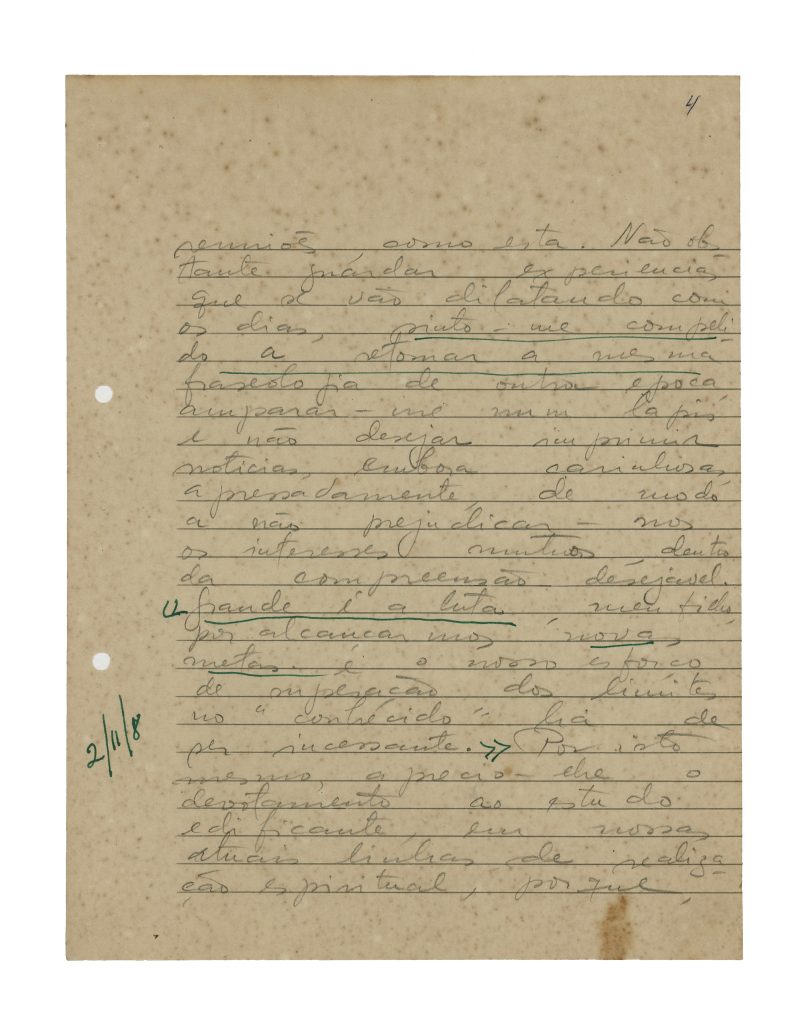 4
reuniões como esta. Não obs
tante guardar experiencias
que se vão dilatando com
os dias, sinto-me compeli
do a retomar a mesma
fraseologia de outra epoca
amparar-me num lapis
e não desejar imprimir
noticias, embora carinhosas
apressadamente, de modo
a não prejudicar-nos
os interesses mutuos dentro
da compreensão desejavel.
" Grande é a luta
por alcançarmos novas
metas. é o nosso esforço
de superação dos limites
no "conhecido" ha de
ser incessante. » Por isto
2/11/8
mesmo, aprecio-lhe o
devotamento ao estudo
edificante, em nossas
atuais linhas de realiza
ção espiritual, porque